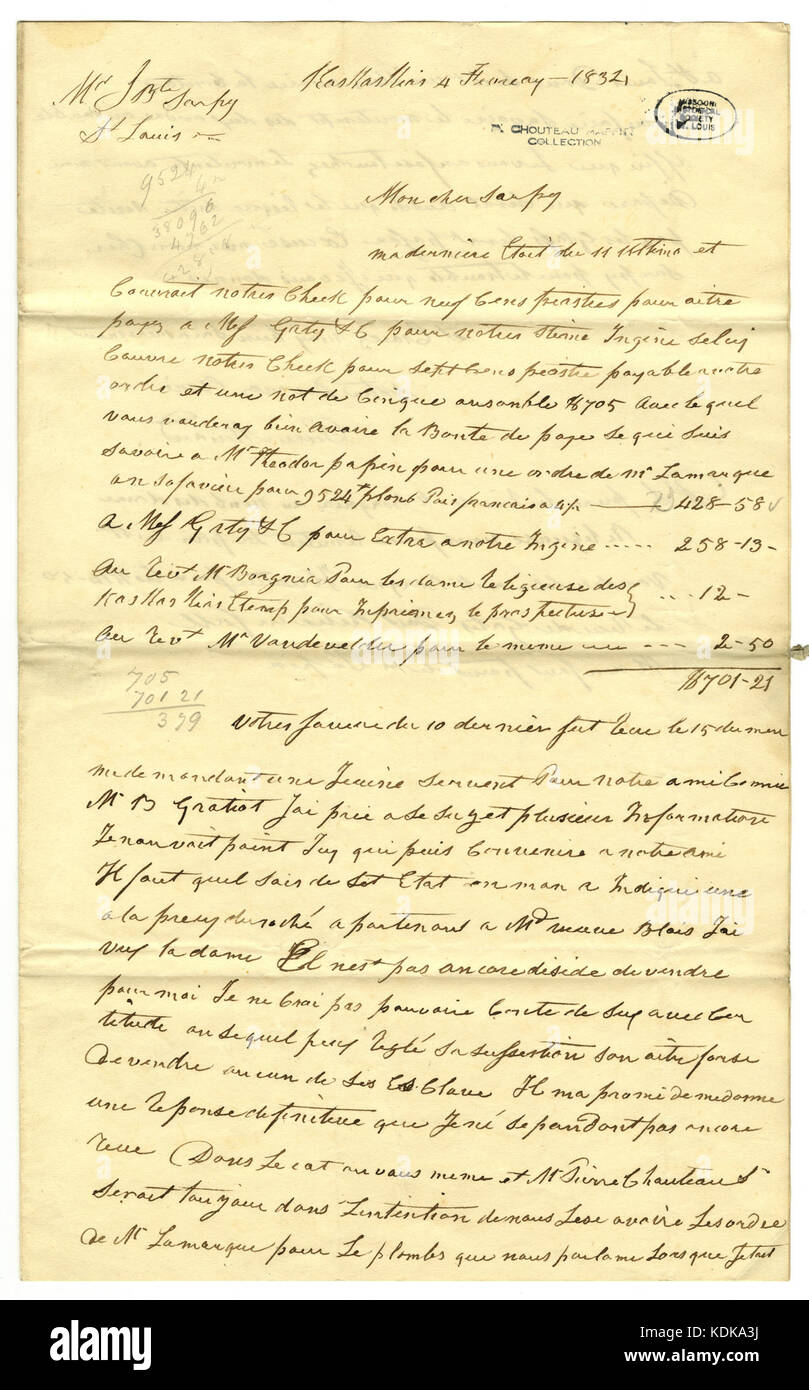 KasKasKias 4 Fevreay - 1832
Mr J Bte Sarpy
St Louis
MISSOURI
HISTORICAL
SOCIETY
ST. LOUIS
P. CHOUTEAU MAFFITT
COLLECTION
9524
4½
38096
4762
428
Mon cher Sarpy
ma derniere Etait du 11 et
Couvrait notres Check pour neuf Cens piastres pour aitre
payez a Mes Gaty & C pour notres steme Ingine seluy
Couvre notres Check pour sept Cens piastre payable a votre
ordre et une not de Cinque ansamble $705 avec lequel
vous vouderay bien avoire la Bonte de paye se qui suis
savoire a Mr Theodor papin pour une ordre de Mr Lamarque
an sa faveur pour 9524 plomb Pois francais a 4½ 428-58
a Mes Gaty & C pour Extra a notre Ingine ..... 258-13-
au Revt Mr Borgnia Pour les dame Religieuse des
KasKasKias pour Inprimez le prospectuse ... 12-
au Revt Mr Vandevelder pour le meme --- 2-50
$701-21
705
701 21
379
votres faveure du 10 dernier fut Recue le 15 du meme
me demandant une Jeune servent Pour notre ami
Mr B Gratiot Jai prie a se sujet plusieur Information
Je nan vait point Juy qui puis Convenire a notre ami
Il faut quel sois de set Etat on man a Indiquie une
a la presry du roché apartenant a Md veuve Blais Jai
vuy la dame El nest pas ancore diside de vendre
pour moi Je ne Croi pas pouvoire Conte de suy avec Cer
titude an sequel puy Reglé sa sussestion son aitre forse
de vendre aucun de ses Esclave Il ma promi de me donne
une Reponse definitive que Jené sepandont pas ancore
Recue Dans Le cat ou vous meme et Mr Pierre Chauteau Sr
serait toujour dans Lintention de nous Lese avoire Les ordre
de Mr Lamarque pour Le plombs que nous parlame Lorsque Jetait
alamy
Image ID: KDKA3J
www.alamy.com